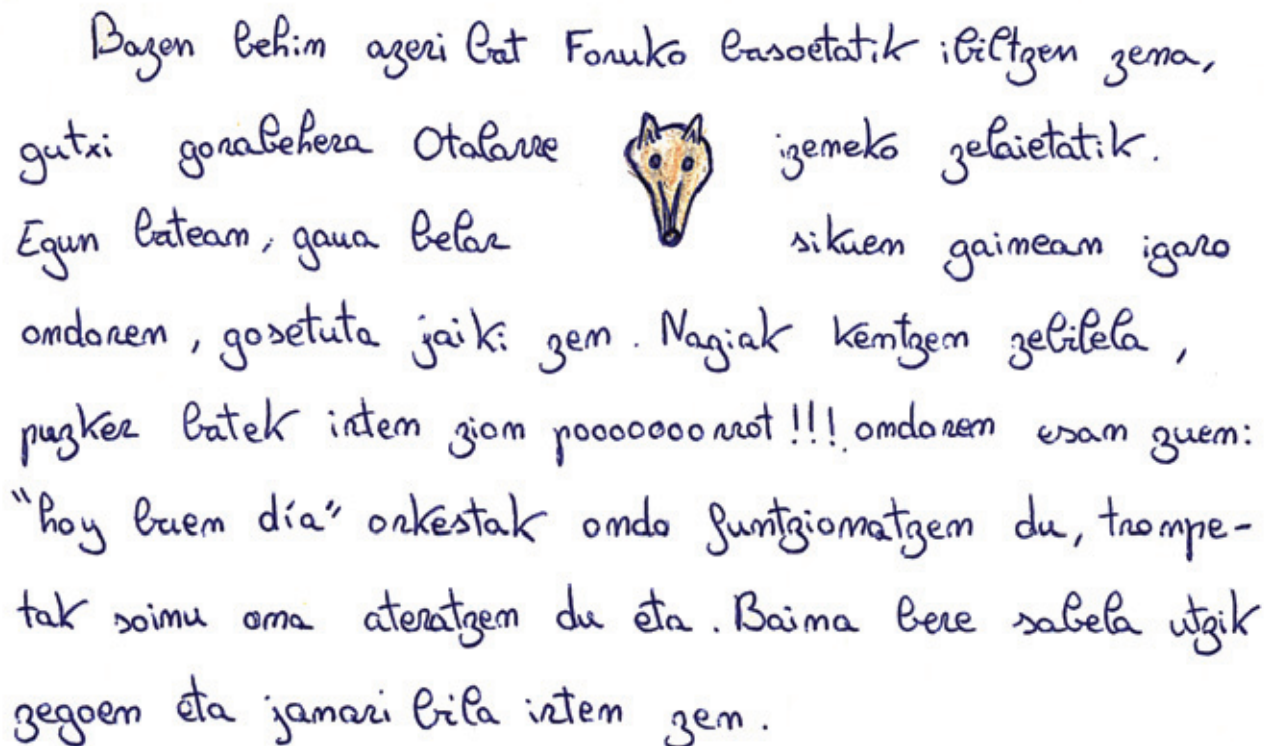 Bazen behin azeri bat Foruko basoetatik ibiltzen zena,
gutxi gorabehera Otalarre izeneko zelaietatik.
Egun batean, gaua belar sikuen gainean igaro
ondoren, gosetuta jaiki zen. Nagiak kentzen zebilela,
puzker batek irten zion pooooooorrot!!! ondoren esan zuen:
"hoy buen día" orkestak ondo funtzionatzen du, trompe-
tak soinu ona ateratzen du eta. Baina bere sabela utzik
zegoen eta janari bila irten zen.